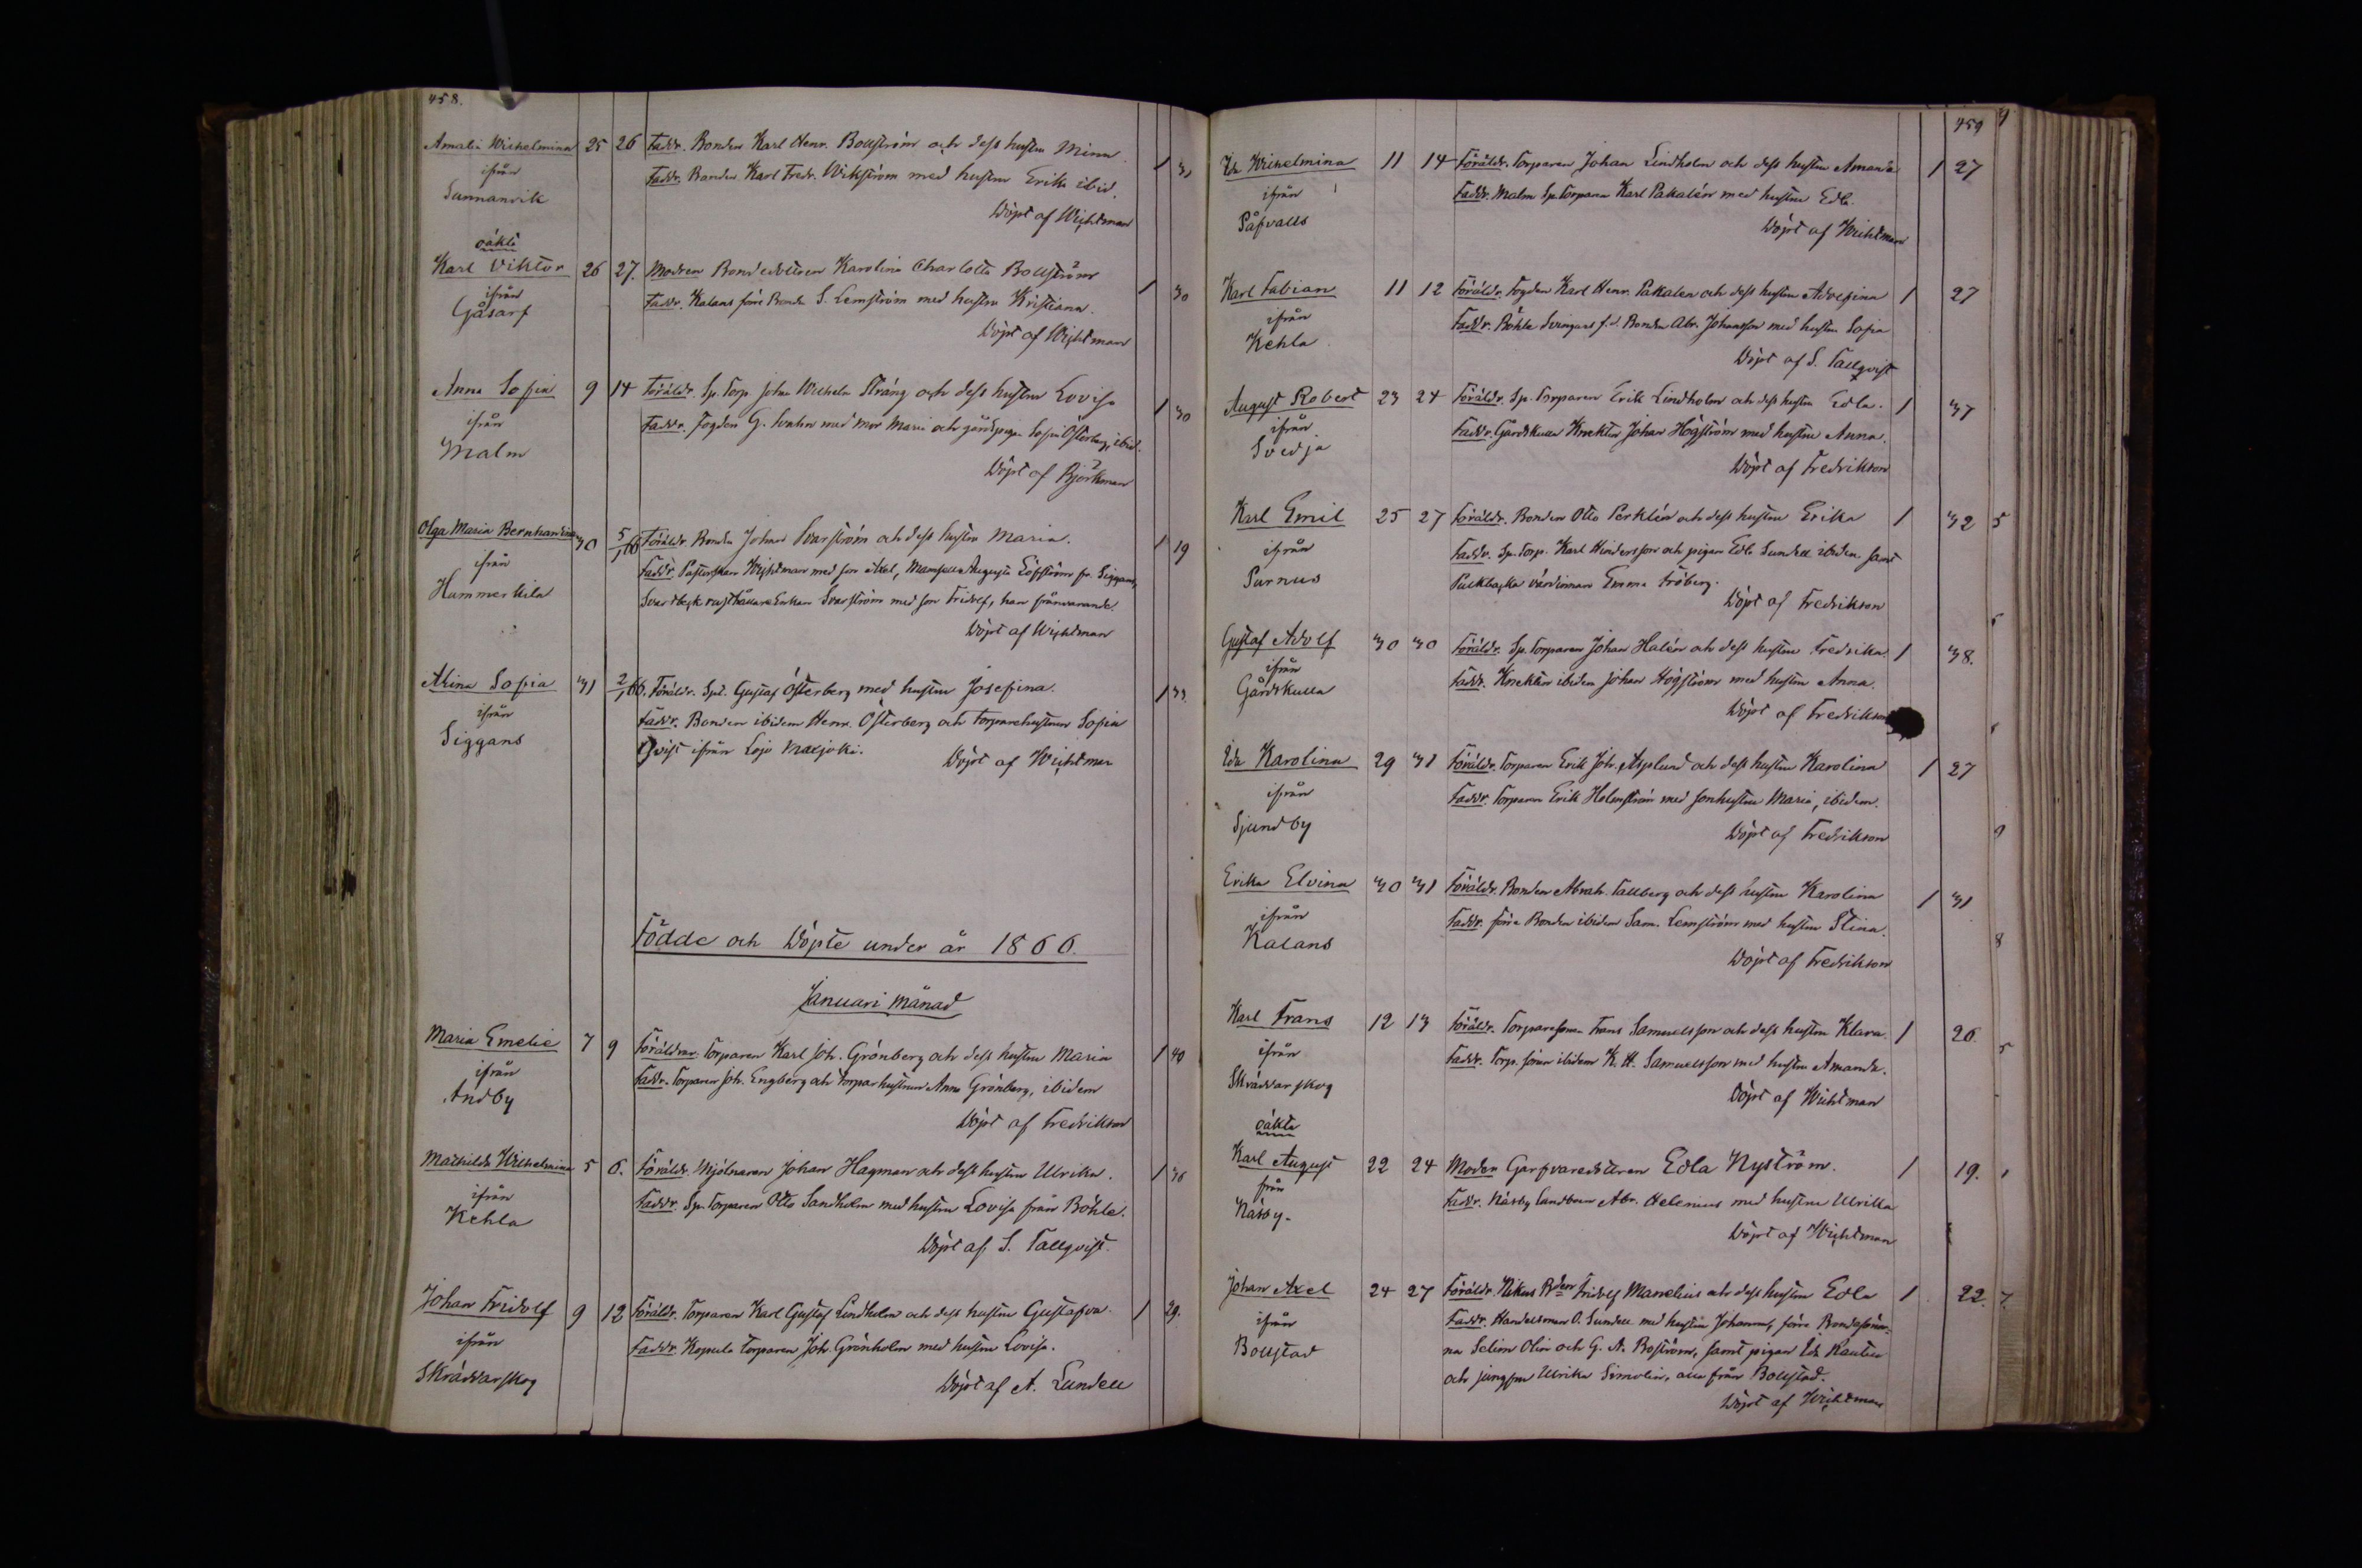 458.
Amalia Wilhelmina 25 26 Faddr. Bonden Karl Henr. Bollström och dess hustru Minna 1 31
ifrån Faddr. Bonden Karl Fredr. Wikström med hustru Erika ibid.
Sunnanvik Döpt af Wichtman
oäkta
Karl Viktor 26 27. Modren Bondedottren Karolina Charlotta Bollström 1 30
ifrån Faddr. Kalans förre Bonde S. Lemström med hustru Kristiana.
Gåsarf Döpt af Wichtman
Anna Sofia 9 14 Föräldr. Sp. Torp. Johan Wilhelm Sträng och dess hustru Lovisa 1 30
ifrån Faddr. Fogden G. med mor Maria och Sofia Österberg, ibid.
Malm Döpt af Björkman
Olga Maria Bernhardina 30 5/1 66 Föräldr. Bonden Johan Svarström och dess hustru Maria. 1 19
ifrån Faddr. Pastorskan Wichtman med son Axel, Mamsell Augusta Löfström fr. Siggans,
Hummerkila Svartbeck rusthållare Enkan Svarström med son Fridolf, han frånvarande.
Döpt af Wichtman
Alina Sofia 31 2/1 66. Föräldr. Spl. Gustaf Österberg med hustru Josefina. 1 33.
ifrån Faddr. Bonden ibidem Henr. Österberg och Torparehustrun Sofia
Siggans Qvist ifrån Lojo Maxjoki. Döpt af Wichtman
Födde och Döpte under år 1866.
Januari månad
Maria Emelie 7 9 Föräldrar. Torparen Karl Joh. Grönberg och dess hustru Maria 1 40
ifrån Faddr. Torparen Joh. Engberg och torparhustrun Anna Grönberg, ibidem
Andby Döpt af Fredrikson
Mathilda Wilhelmina 5 6. Föräldr. Mjölnaren Johan Hagman och dess hustru Ulrika. 1 36
ifrån Faddr. Sp. Torparen Otto Sandholm med hustru Lovisa från Böhle.
Kehla Döpt af S. Tallqvist.
Johan Fridolf 9 12 Föräldr. Torparen Karl Gustaf Lindholm och dess hustru Gustafva 1 29.
ifrån Faddr. Kopula torparen Joh. Grönholm med hustru Lovisa.
Skräddarskog Döpt af A. Lundell
459
Ida Wilhelmina 11 14 Föräldr. Torparen Johan Lindholm och dess hustru Amanda 1 27
ifrån Faddr. Malm Sp. Torparen Karl Pakalén med hustru Edla.
Påfvalls Döpt af Wichtman
Karl Fabian 11 12 Föräldr. Fogden Karl Henr. Pakalen och dess hustru Adolfina 1 27
ifrån Faddr. Böhle Svingars f.d. Bonden Abr. Johansson med hustru Sofia
Kehla Döpt af S. Tallqvist
August Robert 23 24 Föräldr. Sp. Torparen Erik Lindholm och dess hustru Edla. 1 37
ifrån Faddr. Gårdskulla Knekten Johan Högström med hustru Anna.
Svedja Döpt af Fredrikson
Karl Emil 25 27 Föräldr. Bonden Otto Perklén och dess hustru Erika 1 32
ifrån Faddr. Sp. Torp. Karl Hindersson och pigan Edla Sundell ibidem samt
Purnus Puckbacka värdinnan Emma Fröberg.
Döpt af Fredrikson
Gustaf Adolf 30 30 Föräldr. Sp. Torparen Johan Halén och dess hustru Fredrika. 1 38.
ifrån Faddr. Knekten ibidem Johan Högström med hustru Anna.
Gårdskulla Döpt af Fredrikson
Ida Karolina 29 31 Föräldr. Torparen Erik Joh. Asplund och dess hustru Karolina 1 27
ifrån Faddr. Torparen Erik Holmström med sonhustru Maria, ibidem.
Sjundby Döpt af Fredrikson
Erika Elvina 30 31 Föräldr. Bonden Abrah. Tallberg och dess hustru Karolina 1 31
ifrån Faddr. förre Bonden ibidem Sam. Lemström med hustru Stina.
Kalans Döpt af Fredrikson
Karl Frans 12 13 Föräldr. Torparesonen Frans Samuelsson och dess hustru Klara. 1 26.
ifrån Faddr. Torp. sonen ibidem K. H. Samuelsson med hustru Amanda.
Skräddarskog Döpt af Wichtman
oäkta
Karl August 22 24 Moden Garfvaredottren Edla Nyström. 1 19.
från Faddr. Näsby Landbonn Abr. Helenius med hustru Ulrika
Näsby. Döpt af Wichtman
Johan Axel 24 27 Föräldr. Nikus Bden Fridolf Manelius och dess hustru Edla 1 22.
ifrån Faddr. Handelsman O. Sundell med hustru Johanna, förre Bondesöner-
Bollstad na Selim Olin och G. A. Boström, samt pigan Ida
och jungfru Ulrika Simolin, alla från Bollstad.
Döpt af Wichtman